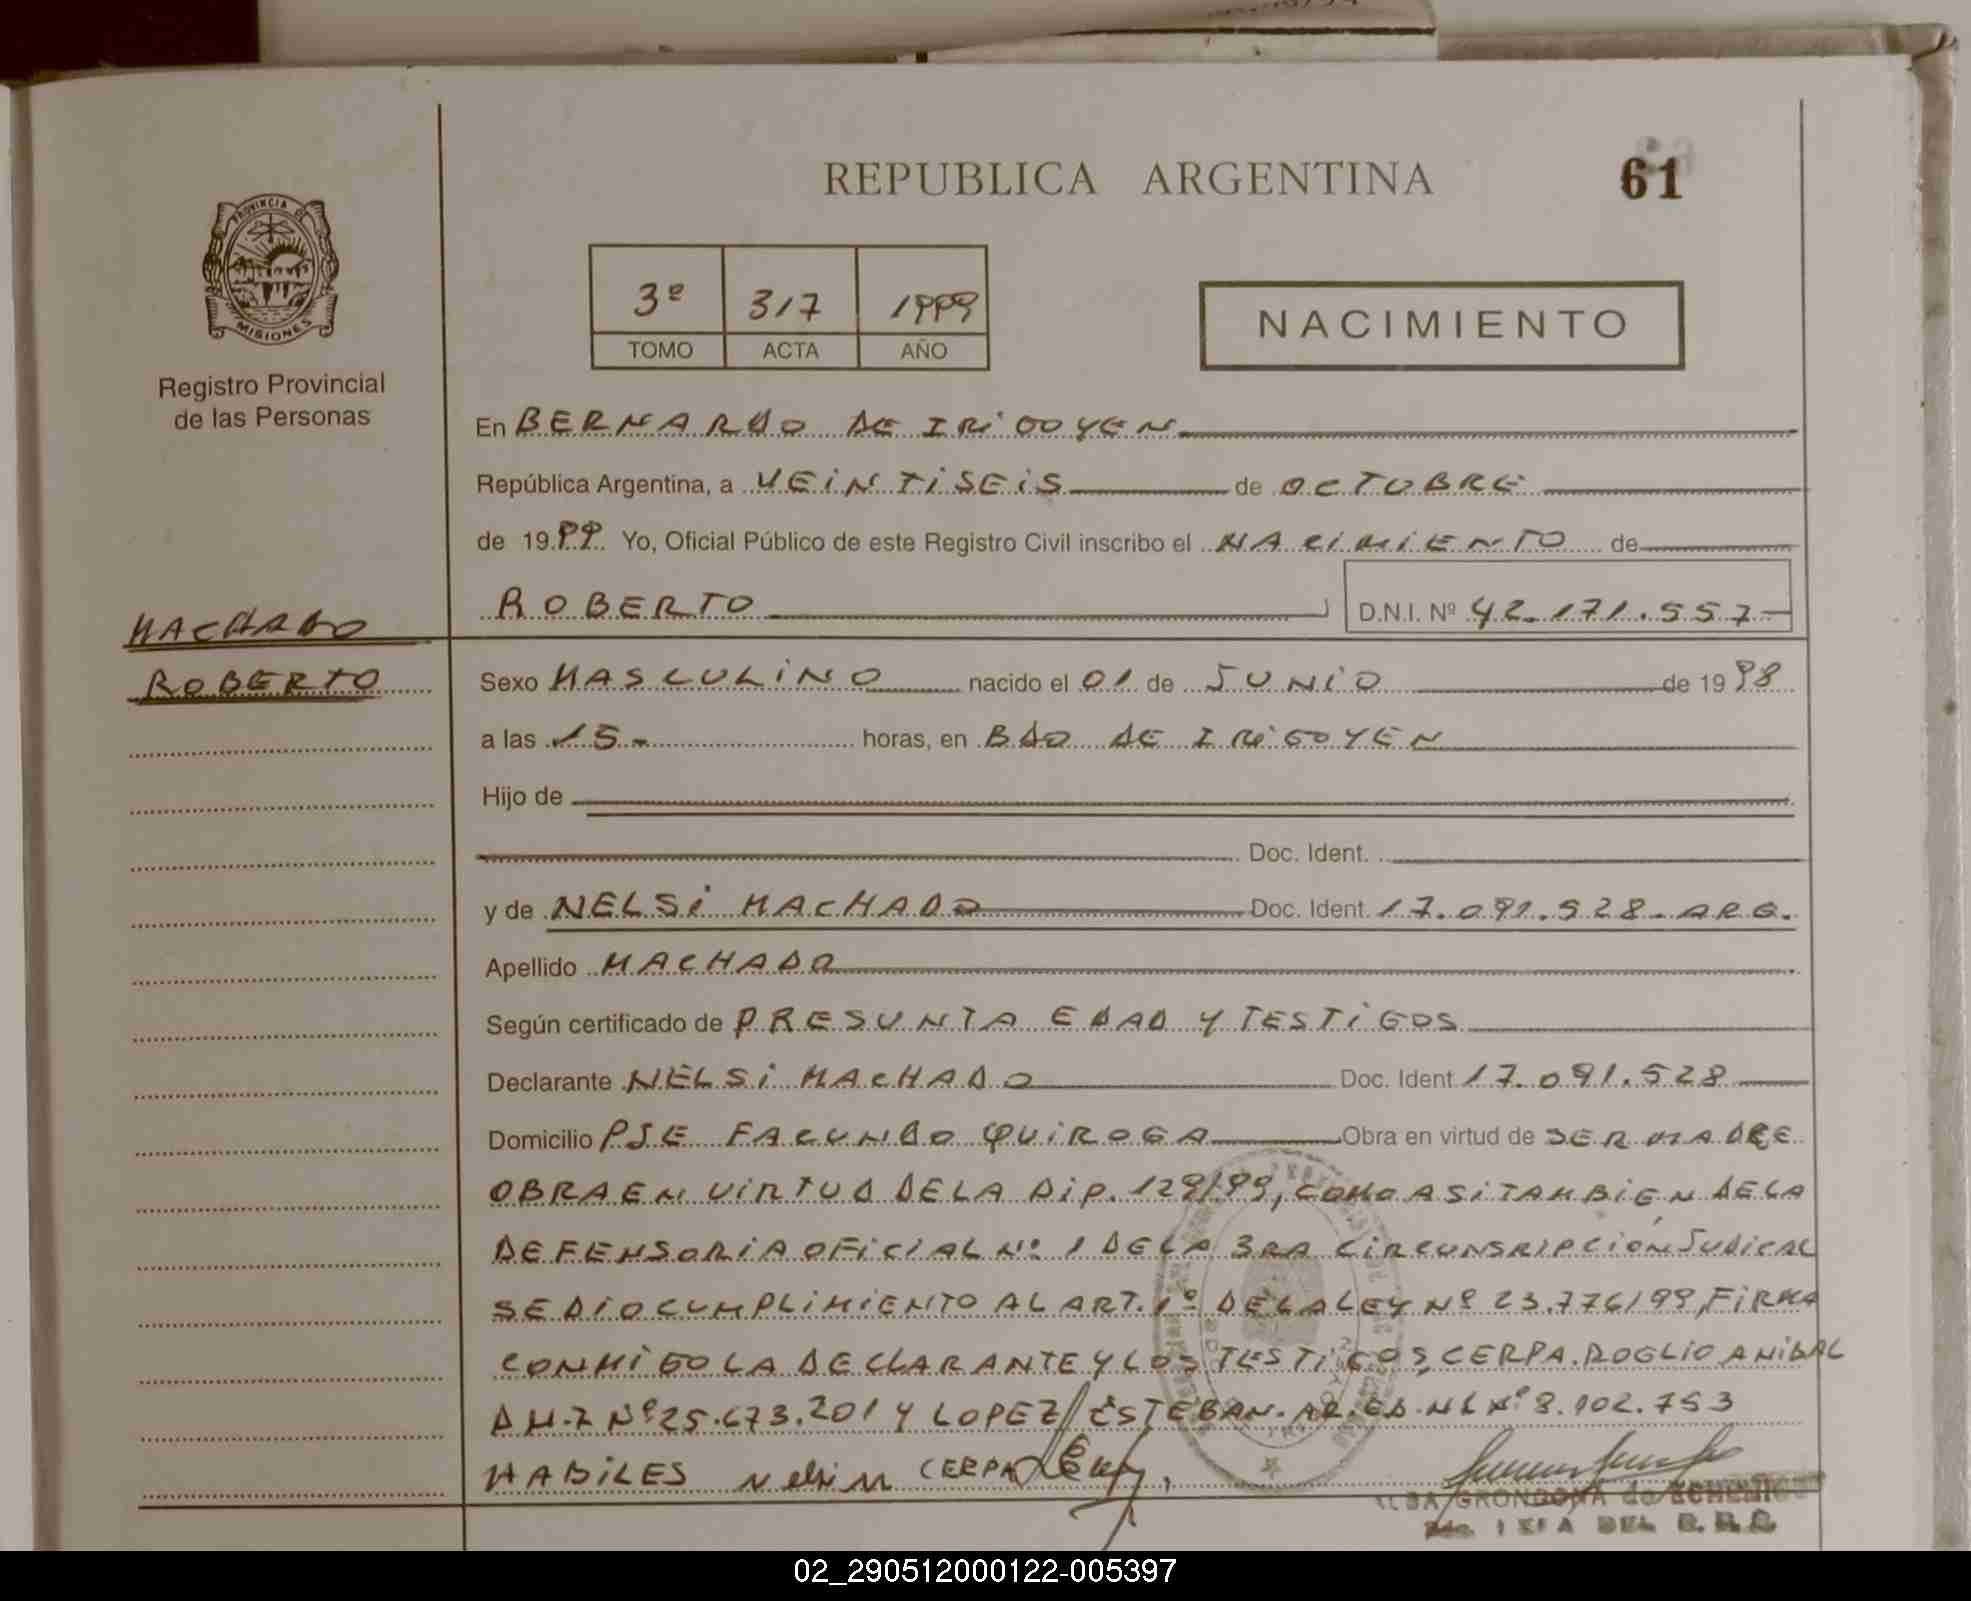 REPUBLICA ARGENTINA
61
PROVINCIA DE
MISIONES
Registro Provincial
de las Personas
3º 317 1999
TOMO ACTA AÑO
NACIMIENTO
En BERNARDO DE IRIGOYEN
República Argentina, a VEINTISEIS de OCTUBRE
de 1999 Yo, Oficial Público de este Registro Civil inscribo el NACIMIENTO de
ROBERTO D.N.I. Nº 42.171.557
MACHADO
ROBERTO
Sexo MASCULINO nacido el 01 de JUNIO de 1998
a las 15 horas, en BDO DE IRIGOYEN
Hijo de
Doc. Ident.
y de NELSI MACHADO Doc. Ident. 17.091.528. ARG.
Apellido MACHADO
Según certificado de PRESUNTA EDAD Y TESTIGOS
Declarante NELSI MACHADO Doc. Ident 17.091.528
Domicilio PJE FACUNDO QUIROGA Obra en virtud de SER MADRE
OBRA EN VIRTUD DE LA DIP. 129/99, COMO ASI TAMBIEN DE LA
DEFENSORIA OFICIAL Nº 1 DE LA 3RA CIRCUNSRIPCIÓN JUDICAL
SE DIO CUMPLIMIENTO AL ART. 1º DE LA LEY Nº 23.776/99, FIRMA
CONMIGO LA DECLARANTE Y LOS TESTIGOS, CERPA. ROGLIO ANIBAL
D.N.I Nº 25.673.201 Y LOPEZ ESTEBAN. Nº 8.102.753
HABILES CERPA
GRONDONA de
DEL
02_290512000122-005397